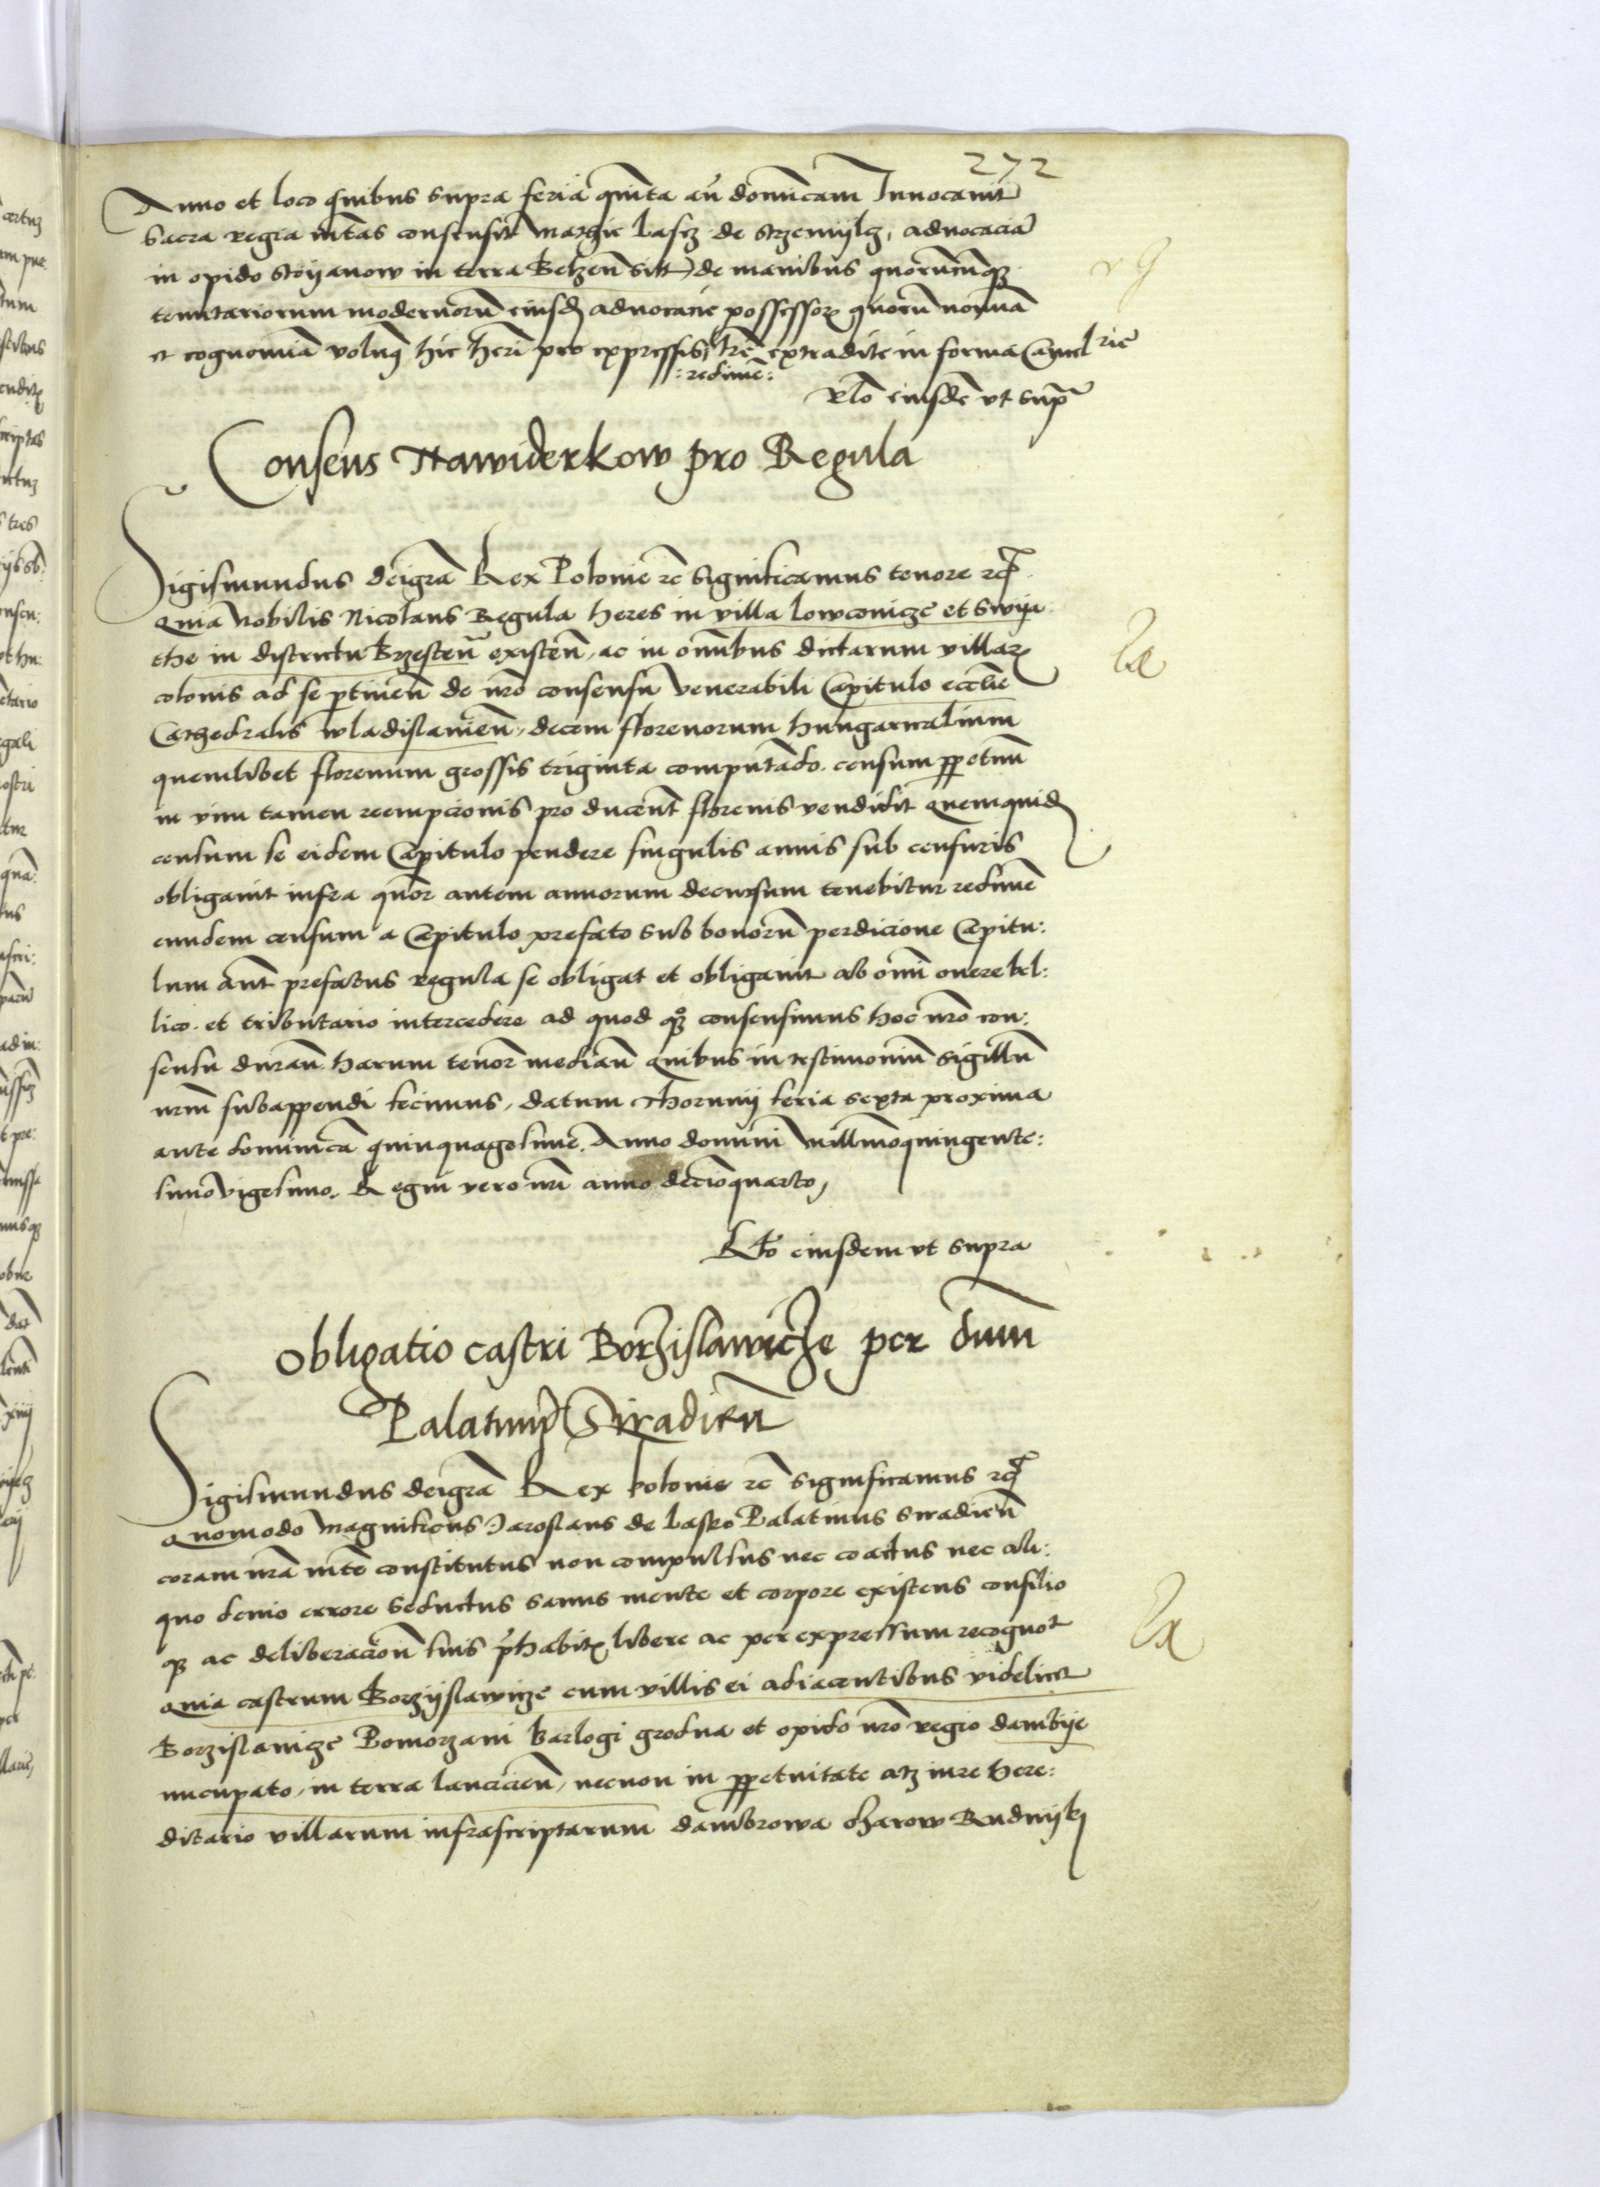 272
Anno et loco quibus supra feria quīta añ domīcam Innocauit
Sacra regia mtas consensit Mathie Lasch de Strzemylcz, aduocaciā
in opido Stoyanow in terra Belzeñ sitt) de manibus quorumcūqȝ
tenutariorum modernorū eiusdē aduocacie possessorū quorū noīna
et cognomīa volum⁹ hic heri pro expressis, lr̄e extradite in forma Cancel rie
: redimē :
Rlo eiusdē vt sup̄
Consens Nawiderkow pro Regula
Sigismundus deigrā Rex Polonie rē significamus tenore rc̄
Quia Nobilis Nicolaus Regula heres in villa Lowconicze et Swija
the in districtu Brzesteñ existeñ, ac in omībus dictarum villarū
colonis ad se ptineñ de nr̄o consensu venerabili Capitulo eccl̄ie
Cathedralis Wladislauieñ, decem florenorum hungaricalium
quemlibet florenum grossis triginta computādo. censum ppetuū
in vim tamen reempcionis pro ducent̄ florenis vendidit quemquidē
censum se eidem Capitulo pendere singulis annis sub censuris
obligauit infra quor̄ autem annorum decursum tenebitur redimē
eundem censum a Capitulo prefato sub bonorū perdicione Capitu:
lum aut̄ prefatus Regula se obligat et obligauit ab om̄i onere bel:
lico. et tributario intercedere ad quod qȝ consensimus hoc nr̄o con:
sensu durañ harum tenor̄ mediañ quibus in testimoniū sigillū
nr̄m subappendi fecimus, datum Thorunij feria sexta proxima
ante dominicā quinquagesime. Anno domini Millmoquingente:
simo vigesimo. Regni vero nr̄i anno decīoquarto,
Rlo eiusdem vt supra
Obligatio castri Borzislawicze per dnm
Palatinū Siradieñ
Sigismundus deigrā Rex polonie rē significamus rc̄
Quomodo Magnificus Jaroslaus de Lasko Palatinus Siradieñ
coram nrā mte constitutus non compulsus nec coactus nec ali:
quo deuio errore seductus sanus mente et corpore existens consilio
qȝ ac deliberacioñ suis p̄habitis libere ac per expressum recognot̄
quia castrum Borzyslawicze cum villis ei adiacentibus videlicet
Borzislauicze Pomorzani Barlogi grodna et opido nr̄o regio dambije
nucupato, in terra Lancicieñ, necnon in ppetuitate atqȝ iure here:
ditario villarum infrascriptarum dambrowa charow Rudnyki